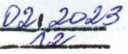 02.2023
12